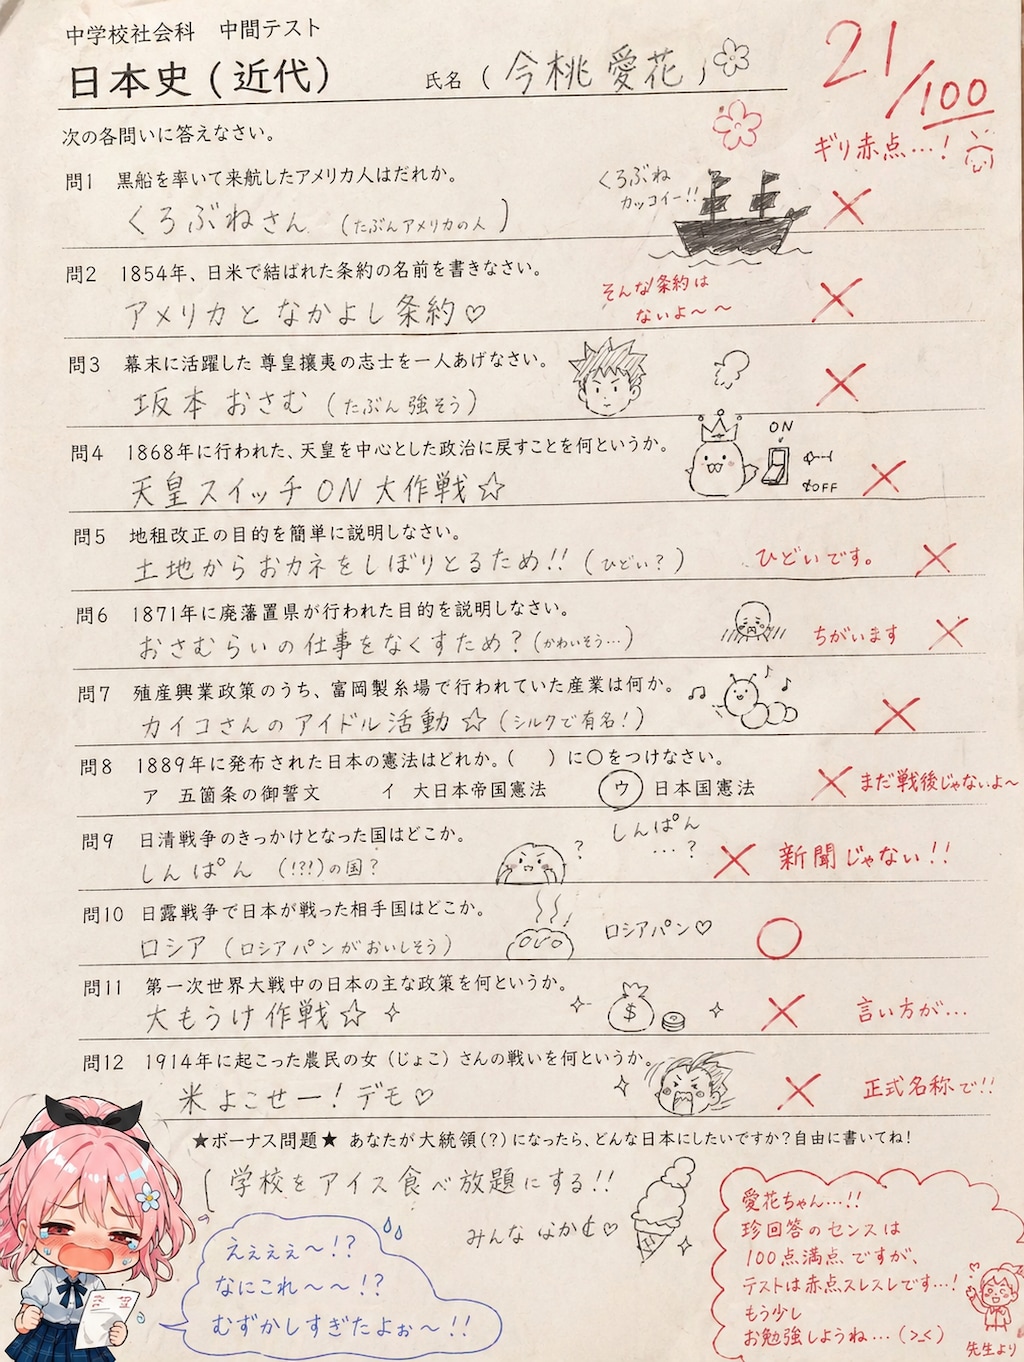 中学校社会科　中間テスト
日本史(近代)
氏名 (今桃 愛花)
21/100
ギリ赤点…!
次の各問いに答えなさい。
問1　黒船を率いて来航したアメリカ人はだれか。
くろぶねさん (たぶんアメリカの人)
くろぶね
カッコイー!!
問2　1854年、日米で結ばれた条約の名前を書きなさい。
アメリカと なかよし条約♡
そんな条約は
ないよ〜〜
問3　幕末に活躍した 尊皇攘夷の志士を一人あげなさい。
坂本 おさむ (たぶん 強そう)
問4　1868年に行われた、天皇を中心とした政治に戻すことを何というか。
天皇スイッチ ON 大作戦☆
ON
OFF
問5　地租改正の目的を簡単に説明しなさい。
土地からおカネをしぼりとるため!! (ひどい?)
ひどいです。
問6　1871年に廃藩置県が行われた目的を説明しなさい。
おさむらいの仕事をなくすため? (かわいそう…)
ちがいます
問7　殖産興業政策のうち、富岡製糸場で行われていた産業は何か。
カイコさんのアイドル活動☆ (シルクで有名!)
問8　1889年に発布された日本の憲法はどれか。(　)に○をつけなさい。
ア　五箇条の御誓文　　イ　大日本帝国憲法　　ウ　日本国憲法
まだ戦後じゃないよ〜
問9　日清戦争のきっかけとなった国はどこか。
しんぱん (!?!)の国?
しんぱん
…?
新聞じゃない!!
問10　日露戦争で日本が戦った相手国はどこか。
ロシア (ロシアパンがおいしそう)
ロシアパン♡
問11　第一次世界大戦中の日本の主な政策を何というか。
大もうけ作戦☆
$
言い方が…
問12　1914年に起こった農民の女(じょこ)さんの戦いを何というか。
米よこせー!デモ♡
正式名称で!!
★ボーナス問題★ あなたが大統領(?)になったら、どんな日本にしたいですか?自由に書いてね!
学校をアイス食べ放題にする!!
えぇぇぇ〜!?
なにこれ〜〜!?
むずかしすぎたよぉ〜!!
愛花ちゃん…!!
珍回答のセンスは
100点満点ですが、
テストは赤点スレスレです…!
もう少し
お勉強しようね…(>_<)
先生より